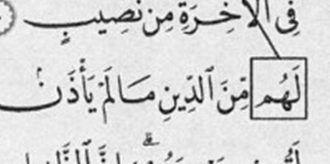 فِى ٱلْآخِرَةِ مِن نَّصِيبٍ
لَهُم مِّنَ ٱلدِّينِ مَا لَمْ يَأْذَنۢ